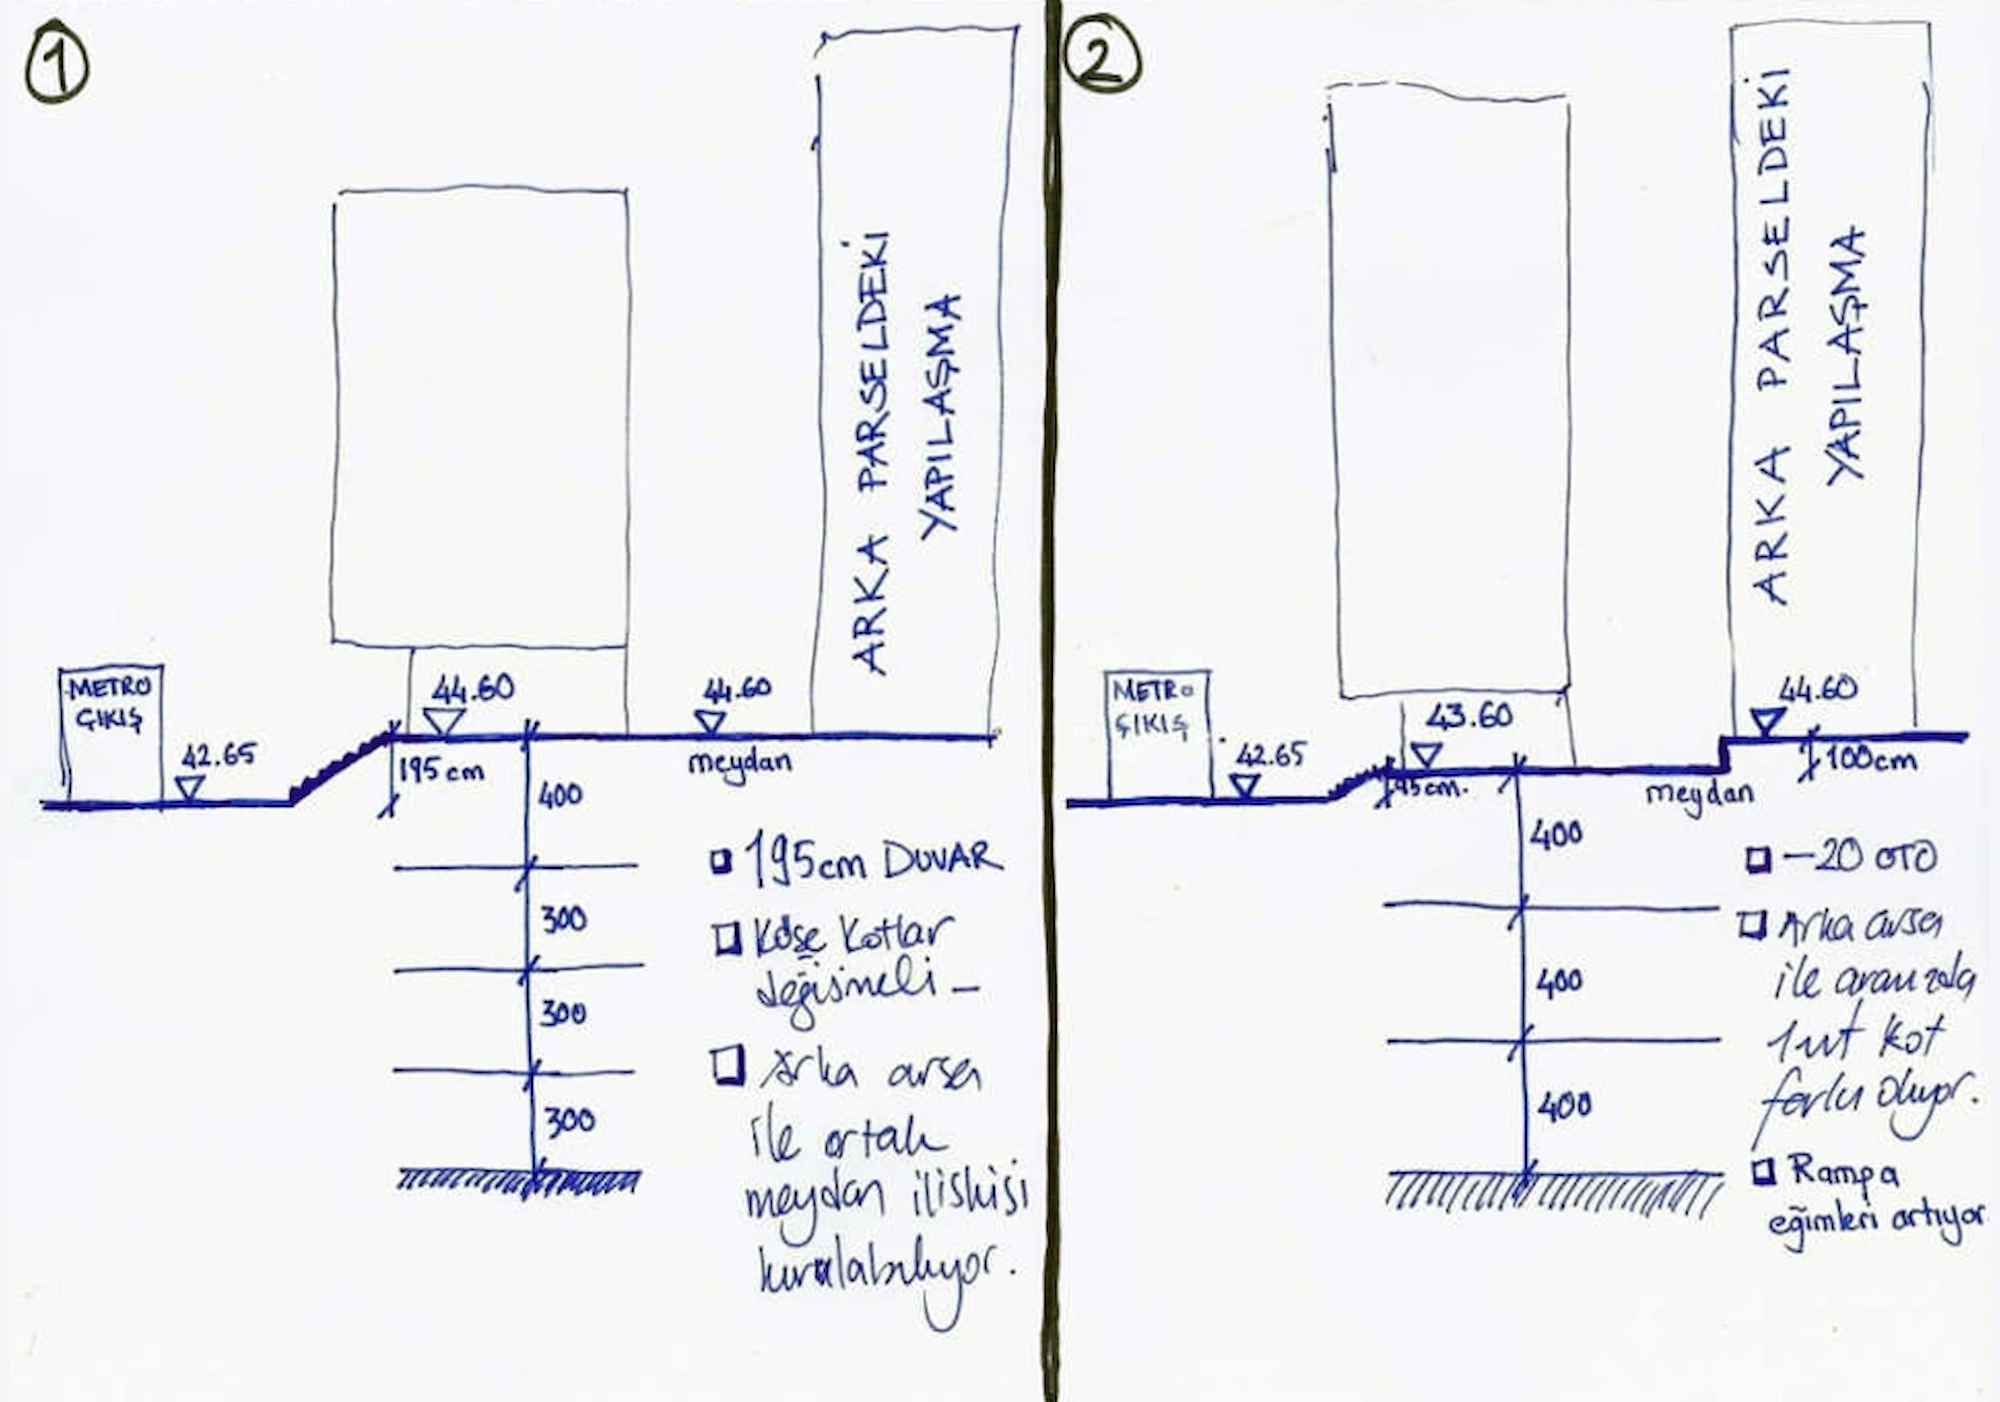 1
ARKA PARSELDEKİ
YAPILAŞMA
METRO
ÇIKIŞ
42.65
44.60
44.60
195cm
meydan
400
300
300
300
195cm DUVAR
Köşe Kotlar
değişmeli –
Arka arsa
ile ortak
meydan ilişkisi
kurulabiliyor.
2
ARKA PARSELDEKİ
YAPILAŞMA
METRO
ÇIKIŞ
42.65
43.60
44.60
95cm.
100cm
meydan
400
400
400
–20 OTO
Arka arsa
ile aramızda
1mt kot
farkı oluyor.
Rampa
eğimleri artıyor